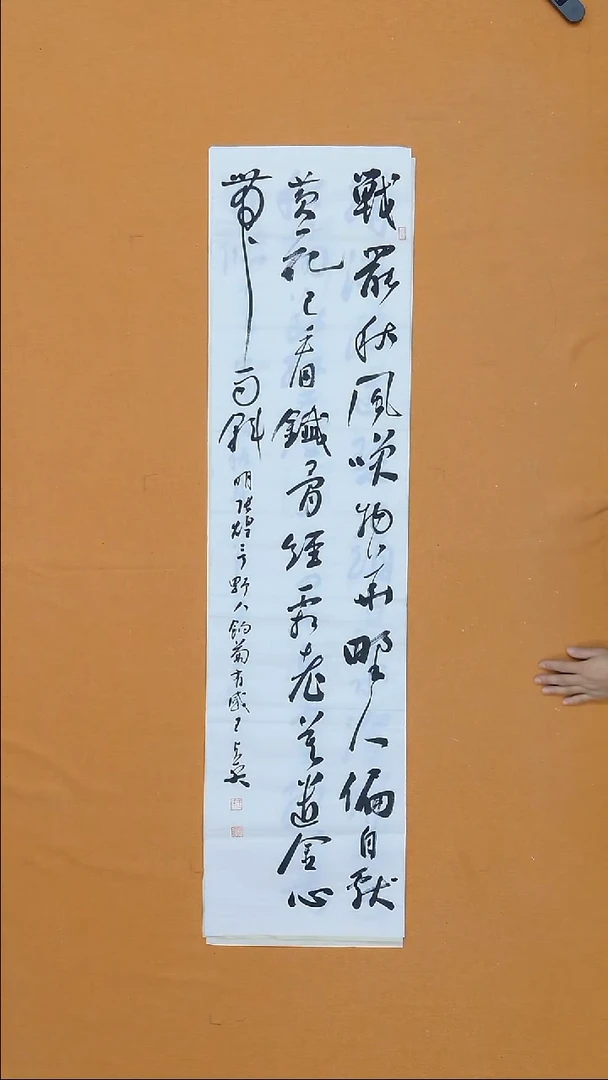 戰罷秋風笑物華野人偏自獻
黃花已看鐵骨經霜老莫遣金心
帶雨斜 明張煌言野人餉菊有感